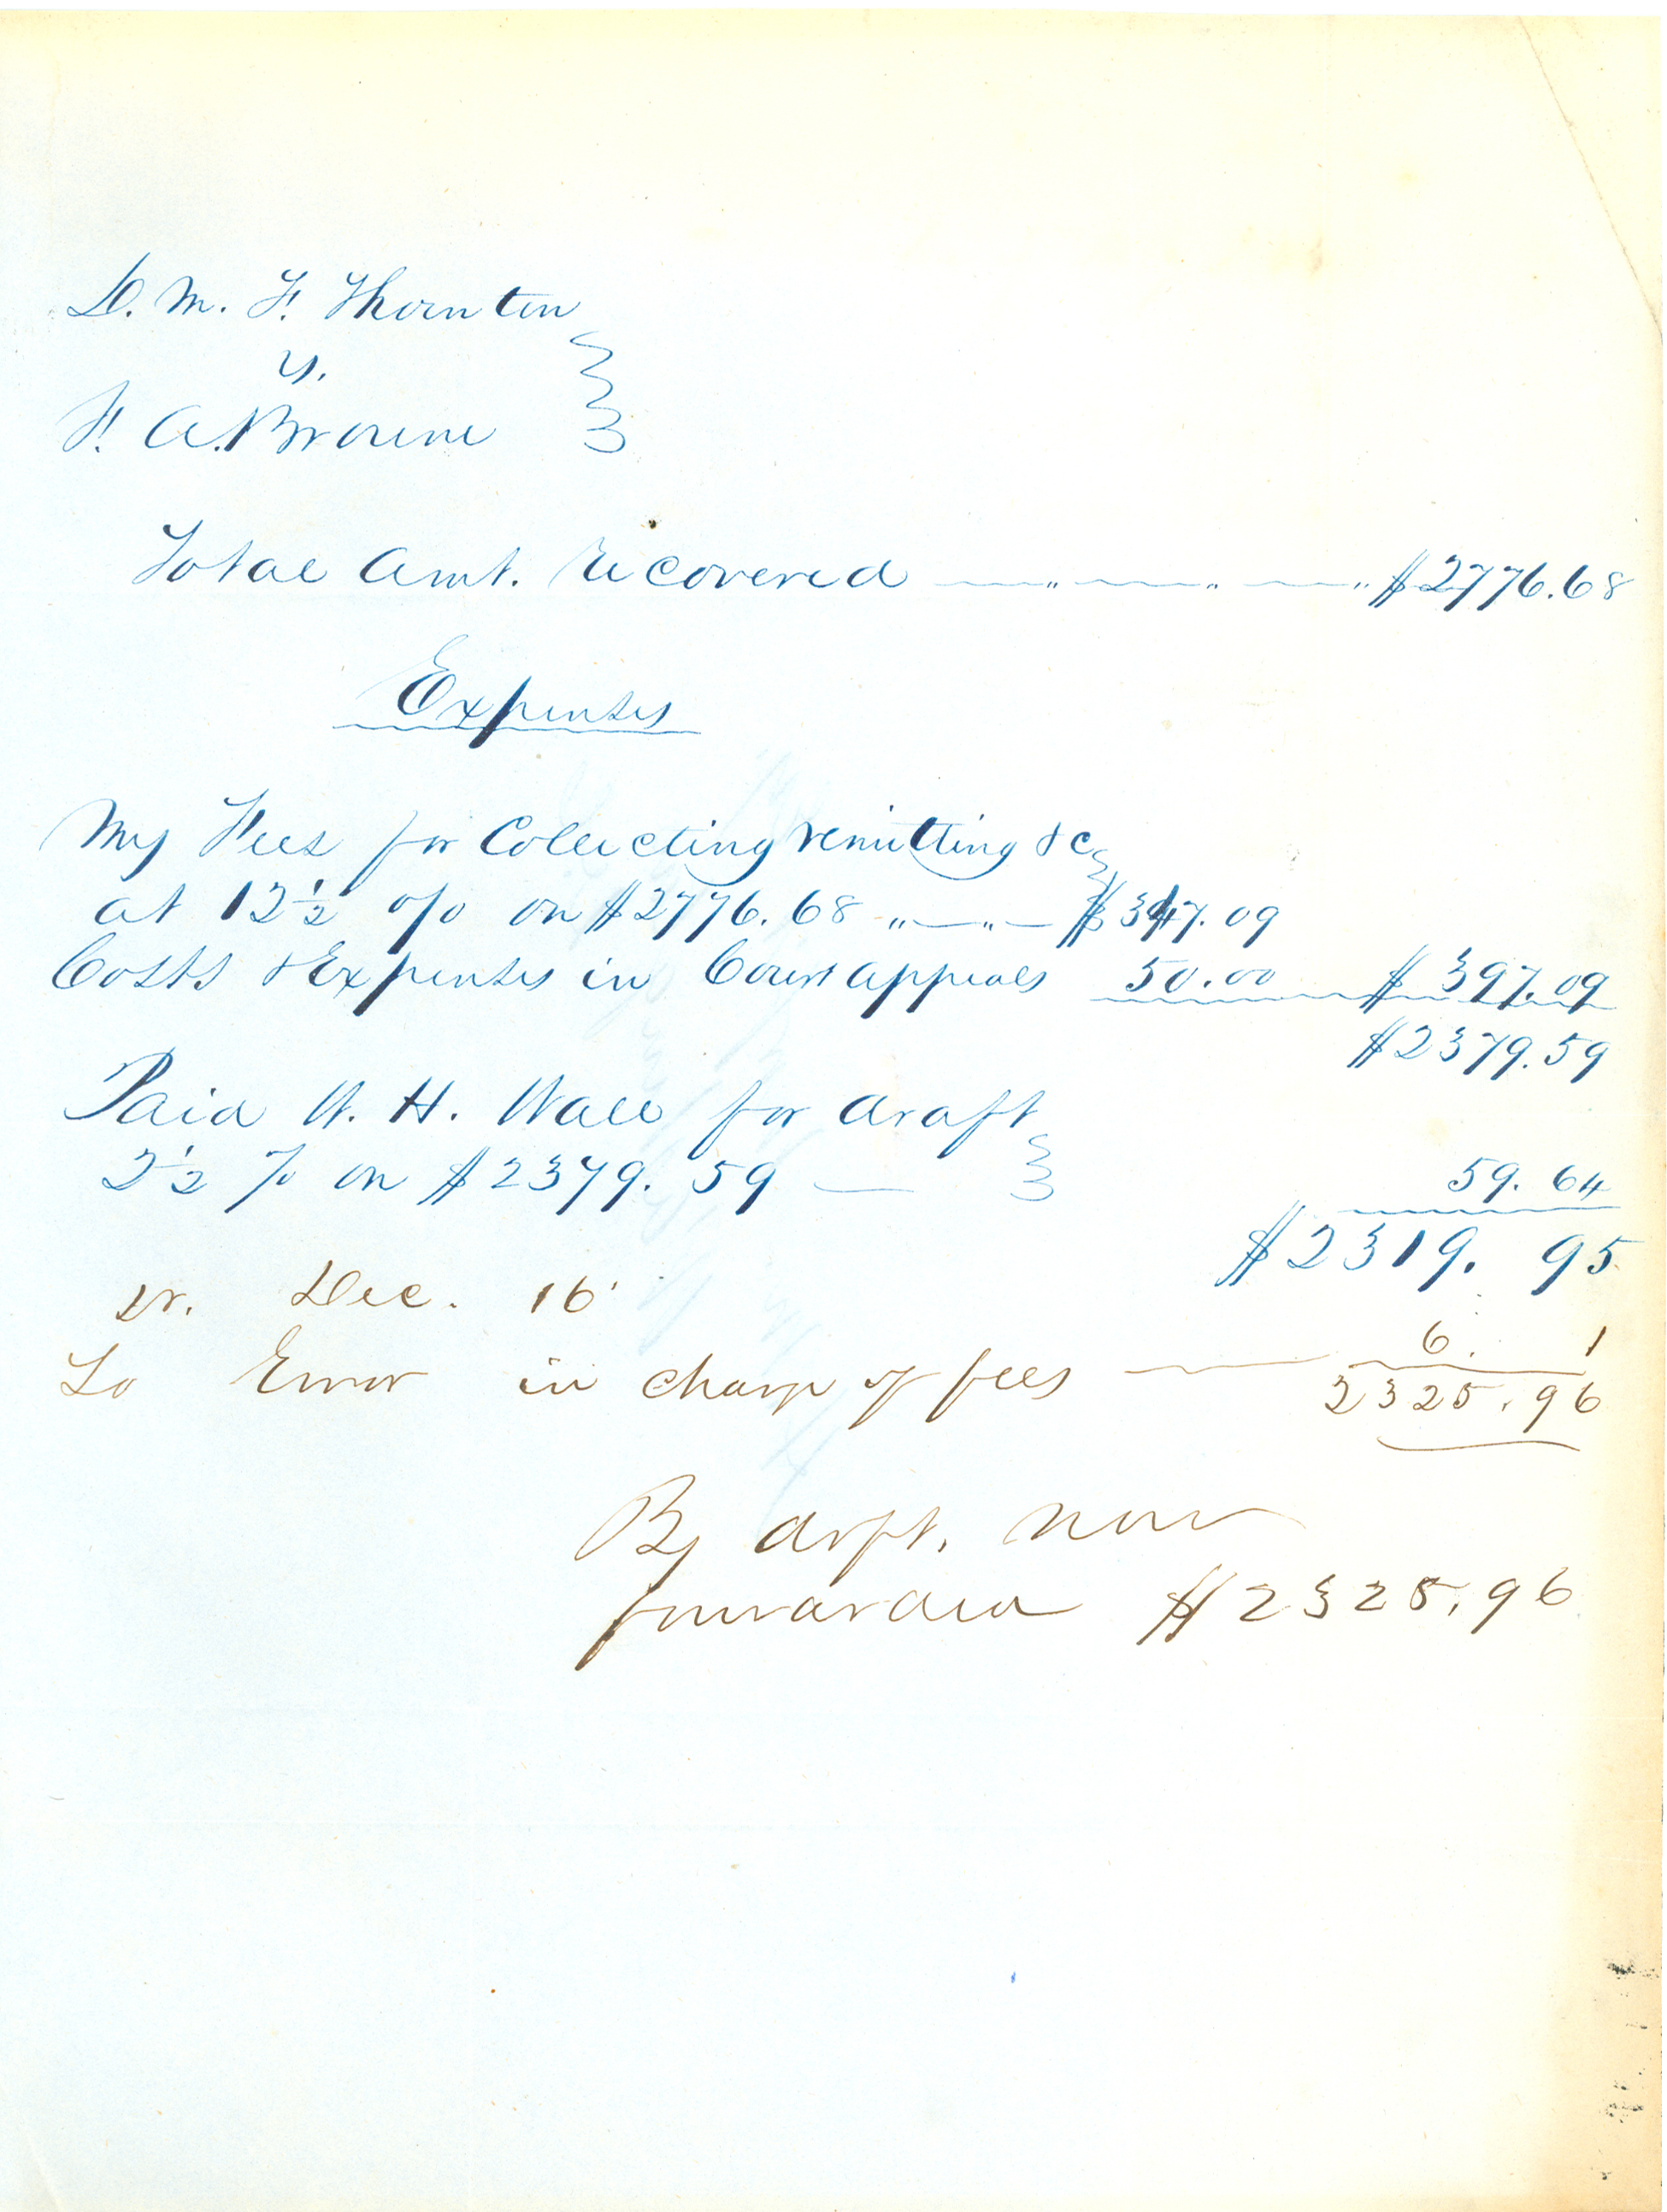 D. M. F. Thornton
vs.
F. A. Browne
Total Amt. recovered $2776.68
Expenses
My Fees for Collecting remitting &c
at 12½ o/o on $2776.68 " " $347.09
Costs & Expenses in Court appeals 50.00 $397.09
$2379.59
Paid W. H. Wall for draft
2½ % on $2379.59 59.64
$2319.95
Dr. Dec. 16
To Error in charge of fees 6. 1
2325.96
By drft. now
forwarded $2325.96